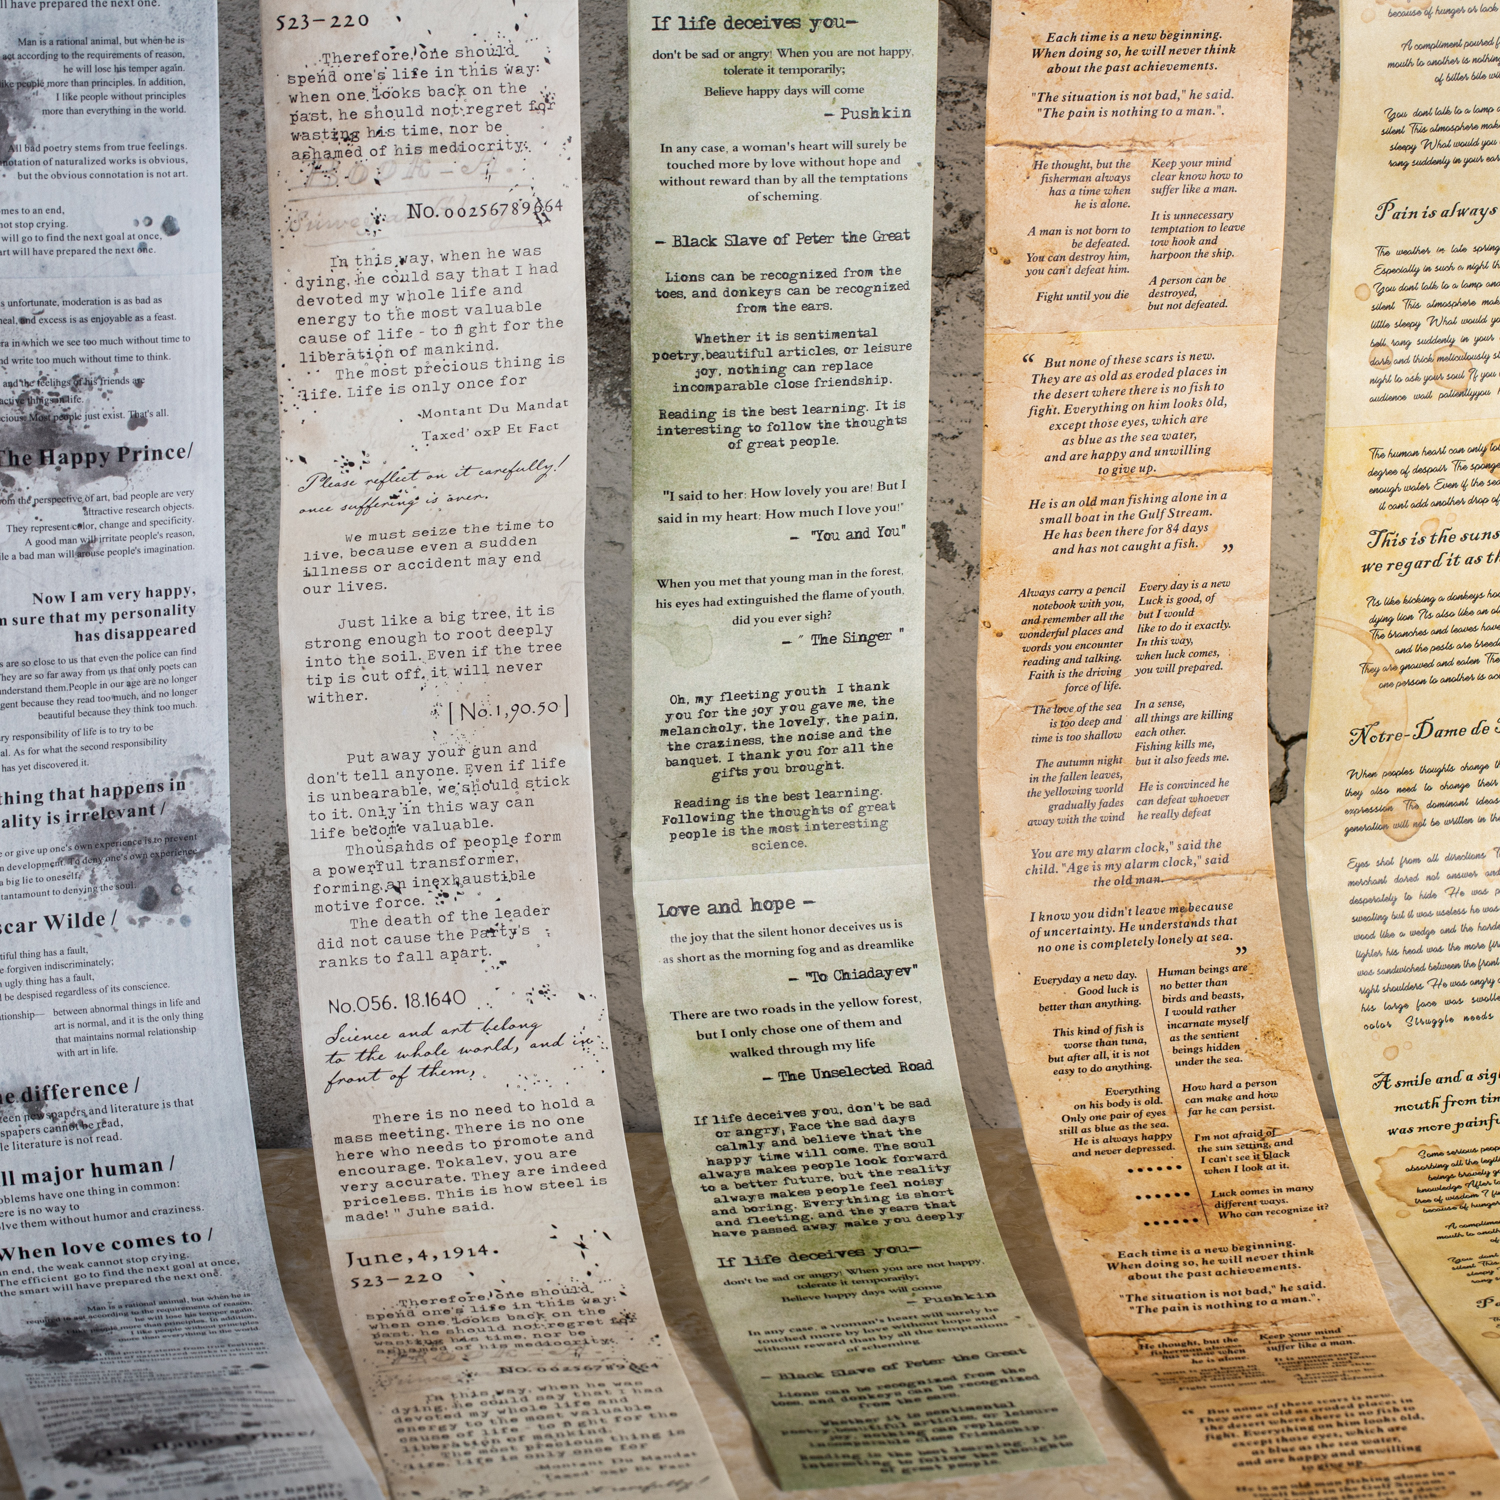 ll have prepared the next one.
Man is a rational animal, but when he is
act according to the requirements of reason,
he will lose his temper again.
like people more than principles. In addition,
I like people without principles
more than everything in the world.
All bad poetry stems from true feelings.
notation of naturalized works is obvious,
but the obvious connotation is not art.
omes to an end,
not stop crying.
will go to find the next goal at once,
art will have prepared the next one.
s unfortunate, moderation is as bad as
meal, and excess is as enjoyable as a feast.
ra in which we see too much without time to
nd write too much without time to think.
and the feelings of his friends are
active things in life.
cious. Most people just exist. That's all.
The Happy Prince/
om the perspective of art, bad people are very
attractive research objects.
They represent color, change and specificity.
A good man will irritate people's reason,
ile a bad man will arouse people's imagination.
Now I am very happy,
m sure that my personality
has disappeared
s are so close to us that even the police can find
They are so far away from us that only poets can
understand them.People in our age are no longer
gent because they read too much, and no longer
beautiful because they think too much.
ry responsibility of life is to try to be
al. As for what the second responsibility
has yet discovered it.
thing that happens in
ality is irrelevant /
e or give up one's own experience is to prevent
n development. To deny one's own experience
a big lie to oneself,
tantamount to denying the soul.
scar Wilde /
tiful thing has a fault,
e forgiven indiscriminately;
n ugly thing has a fault,
d be despised regardless of its conscience.
ationship— between abnormal things in life and
art is normal, and it is the only thing
that maintains normal relationship
with art in life.
he difference /
een newspapers and literature is that
spapers cannot be read,
le literature is not read.
ll major human /
oblems have one thing in common:
ere is no way to
lve them without humor and craziness.
When love comes to /
n end, the weak cannot stop crying.
The efficient go to find the next goal at once,
the smart will have prepared the next one.
Man is a rational animal, but when he is
required to act according to the requirements of reason,
he will lose his temper again.
like people more than principles. In addition,
I like people without principles
more than everything in the world.
The Happy Prince/
523-220
Therefore, one should
spend one's life in this way:
when one looks back on the
past, he should not regret for
wasting his time, nor be
ashamed of his mediocrity;
No.00256789664
In this way, when he was
dying, he could say that I had
devoted my whole life and
energy to the most valuable
cause of life - to fight for the
liberation of mankind.
The most precious thing is
life. Life is only once for
Montant Du Mandat
Taxed' oxP Et Fact
Please reflect on it carefully!
once suffering is over.
We must seize the time to
live, because even a sudden
illness or accident may end
our lives.
Just like a big tree, it is
strong enough to root deeply
into the soil. Even if the tree
tip is cut off, it will never
wither.
[No.1,90.50]
Put away your gun and
don't tell anyone. Even if life
is unbearable, we should stick
to it. Only in this way can
life become valuable.
Thousands of people form
a powerful transformer,
forming an inexhaustible
motive force.
The death of the leader
did not cause the Party's
ranks to fall apart.
No.056. 18.1640
Science and art belong
to the whole world, and in
front of them,
There is no need to hold a
mass meeting. There is no one
here who needs to promote and
encourage. Tokalev, you are
very accurate. They are indeed
priceless. This is how steel is
made! " Juhe said.
June,4,1914.
523-220
Therefore, one should
spend one's life in this way:
when one looks back on the
past, he should not regret for
wasting his time, nor be
ashamed of his mediocrity;
No.00256789664
In this way, when he was
dying, he could say that I had
devoted my whole life and
energy to the most valuable
cause of life - to fight for the
liberation of mankind.
The most precious thing is
life. Life is only once for
Montant Du Mandat
Taxed' oxP Et Fact
If life deceives you—
don't be sad or angry! When you are not happy,
tolerate it temporarily;
Believe happy days will come
— Pushkin
In any case, a woman's heart will surely be
touched more by love without hope and
without reward than by all the temptations
of scheming.
— Black Slave of Peter the Great
Lions can be recognized from the
toes, and donkeys can be recognized
from the ears.
Whether it is sentimental
poetry,beautiful articles, or leisure
joy, nothing can replace
incomparable close friendship.
Reading is the best learning. It is
interesting to follow the thoughts
of great people.
"I said to her: How lovely you are! But I
said in my heart: How much I love you!"
— "You and You"
When you met that young man in the forest,
his eyes had extinguished the flame of youth,
did you ever sigh?
— " The Singer "
Oh, my fleeting youth I thank
you for the joy you gave me, the
melancholy, the lovely, the pain,
the craziness, the noise and the
banquet. I thank you for all the
gifts you brought.
Reading is the best learning.
Following the thoughts of great
people is the most interesting
science.
Love and hope —
the joy that the silent honor deceives us is
as short as the morning fog and as dreamlike
— "To Chiadayev"
There are two roads in the yellow forest,
but I only chose one of them and
walked through my life
— The Unselected Road
If life deceives you, don't be sad
or angry, Face the sad days
calmly and believe that the
happy time will come. The soul
always makes people look forward
to a better future, but the reality
always makes people feel noisy
and boring. Everything is short
and fleeting, and the years that
have passed away make you deeply
If life deceives you—
don't be sad or angry! When you are not happy,
tolerate it temporarily;
Believe happy days will come
— Pushkin
In any case, a woman's heart will surely be
touched more by love without hope and
without reward than by all the temptations
of scheming.
— Black Slave of Peter the Great
Lions can be recognized from the
toes, and donkeys can be recognized
from the ears.
Whether it is sentimental
poetry,beautiful articles, or leisure
joy, nothing can replace
incomparable close friendship.
Reading is the best learning. It is
interesting to follow the thoughts
of great people.
Each time is a new beginning.
When doing so, he will never think
about the past achievements.
"The situation is not bad," he said.
"The pain is nothing to a man.".
He thought, but the
fisherman always
has a time when
he is alone.
A man is not born to
be defeated.
You can destroy him,
you can't defeat him.
Fight until you die
Keep your mind
clear know how to
suffer like a man.
It is unnecessary
temptation to leave
tow hook and
harpoon the ship.
A person can be
destroyed,
but not defeated.
“ But none of these scars is new.
They are as old as eroded places in
the desert where there is no fish to
fight. Everything on him looks old,
except those eyes, which are
as blue as the sea water,
and are happy and unwilling
to give up.
He is an old man fishing alone in a
small boat in the Gulf Stream.
He has been there for 84 days
and has not caught a fish. ”
Always carry a pencil
notebook with you,
and remember all the
wonderful places and
words you encounter
reading and talking.
Faith is the driving
force of life.
The love of the sea
is too deep and
time is too shallow
The autumn night
in the fallen leaves,
the yellowing world
gradually fades
away with the wind
Every day is a new
Luck is good, of
but I would
like to do it exactly.
In this way,
when luck comes,
you will prepared.
In a sense,
all things are killing
each other.
Fishing kills me,
but it also feeds me.
He is convinced he
can defeat whoever
he really defeat
You are my alarm clock," said the
child. "Age is my alarm clock," said
the old man.
I know you didn't leave me because
of uncertainty. He understands that
no one is completely lonely at sea. ”
Everyday a new day.
Good luck is
better than anything.
This kind of fish is
worse than tuna,
but after all, it is not
easy to do anything.
Everything
on his body is old.
Only one pair of eyes
still as blue as the sea.
He is always happy
and never depressed.
••••••
••••••
••••••
Human beings are
no better than
birds and beasts,
I would rather
incarnate myself
as the sentient
beings hidden
under the sea.
How hard a person
can make and how
far he can persist.
I'm not afraid of
the sun setting, and
I can't see it black
when I look at it.
Luck comes in many
different ways.
Who can recognize it?
Each time is a new beginning.
When doing so, he will never think
about the past achievements.
"The situation is not bad," he said.
"The pain is nothing to a man.".
He thought, but the
fisherman always
has a time when
he is alone.
Keep your mind
clear know how to
suffer like a man.
“ But none of these scars is new.
They are as old as eroded places in
the desert where there is no fish to
fight. Everything on him looks old,
except those eyes, which are
as blue as the sea water,
and are happy and unwilling
to give up.
He is an old man fishing alone in a
small boat in the Gulf Stream.
because of hunger or lack
A compliment poured f
mouth to another is nothing
of bitter bile wi
You dont talk to a lamp a
silent This atmosphere mak
sleepy What would you
rang suddenly in your ears
Pain is always
The weather in late spring
Especially in such a night th
You dont talk to a lamp and
silent This atmosphere mak
little sleepy What would yo
bell rang suddenly in your
dark and thick meticulously s
night to ask your soul If you
audience wait patientlyyou
The human heart can only tol
degree of despair The sponge
enough water Even if the sea
it cant add another drop of
This is the suns
we regard it as th
Its like kicking a donkeys hoo
dying lion Its also like an ol
The branches and leaves have
and the pests are breed
They are gnawed and eaten The
one person to another is ac
Notre-Dame de
When peoples thoughts change th
they also need to change their
expression The dominant ideas
generation will not be written in the
Eyes shot from all directions T
merchant dared not answer and
desperately to hide He was p
sweating but it was useless he was
wood like a wedge and the harde
tighter his head was the more fir
was sandwiched between the front
right shoulders He was angry a
his large face was swolle
color Struggle needs
A smile and a sig
mouth from tim
was more painfu
Some serious peop
absorbing all the legiti
beings bravely g
knowledge After t
tree of wisdom I f
because of hunger
A complimen
mouth to anoth
of
You dont
silent T
sleepy
Pa